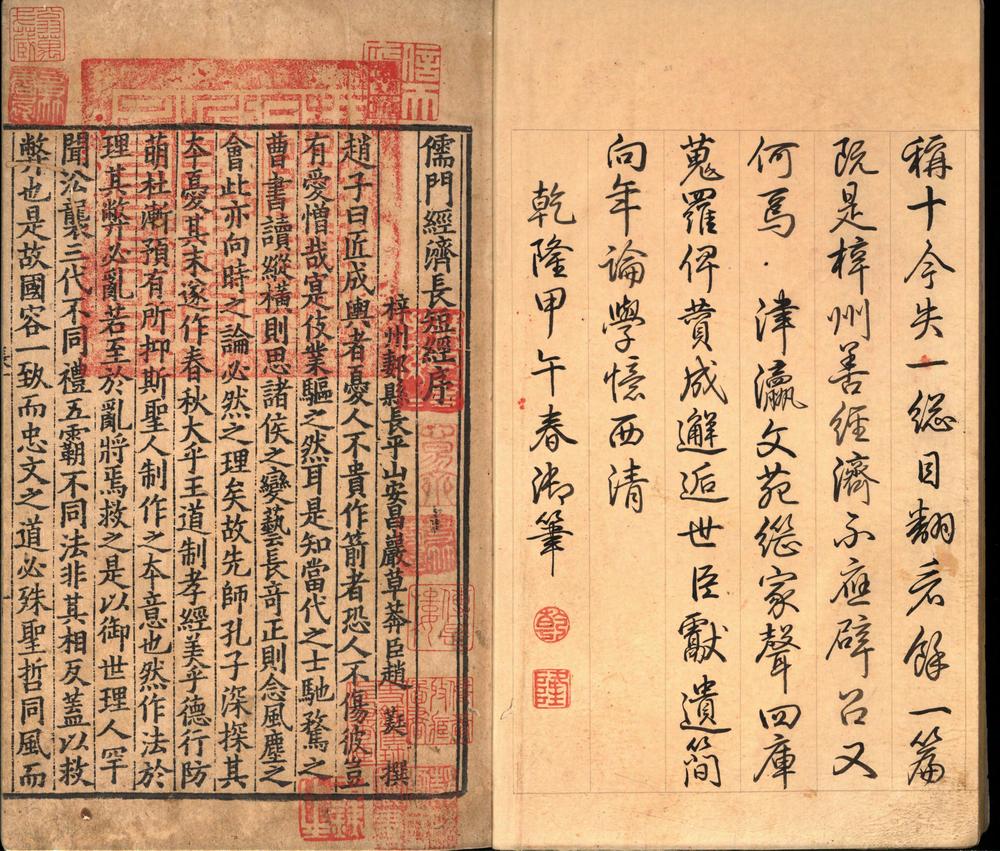 稱十今失一總目翻看餘一篇
既是梓州善經濟不應辟召又
何焉・津瀛文苑總家聲四庫
蒐羅俾賛成邂逅世臣獻遺簡
向年論學憶西清
乾隆甲午春御筆
乾
隆
儒門經濟長短經序
梓州郪縣長平山安昌巖草莽臣趙 蕤 撰
趙子曰匠成輿者憂人不貴作箭者恐人不傷彼豈
有愛憎哉寔伎業驅之然耳是知當代之士馳騖之
曹書讀縱橫則思諸侯之變藝長奇正則念風塵之
會此亦向時之論必然之理矣故先師孔子深探其
夲憂其末遂作春秋大乎王道制孝經美乎德行防
萌杜漸預有所抑斯聖人制作之夲意也然作法於
理其弊必亂若至於亂將焉救之是以御世理人罕
聞沿襲三代不同禮五霸不同法非其相反蓋以救
弊也是故國容一致而忠文之道必殊聖哲同風而